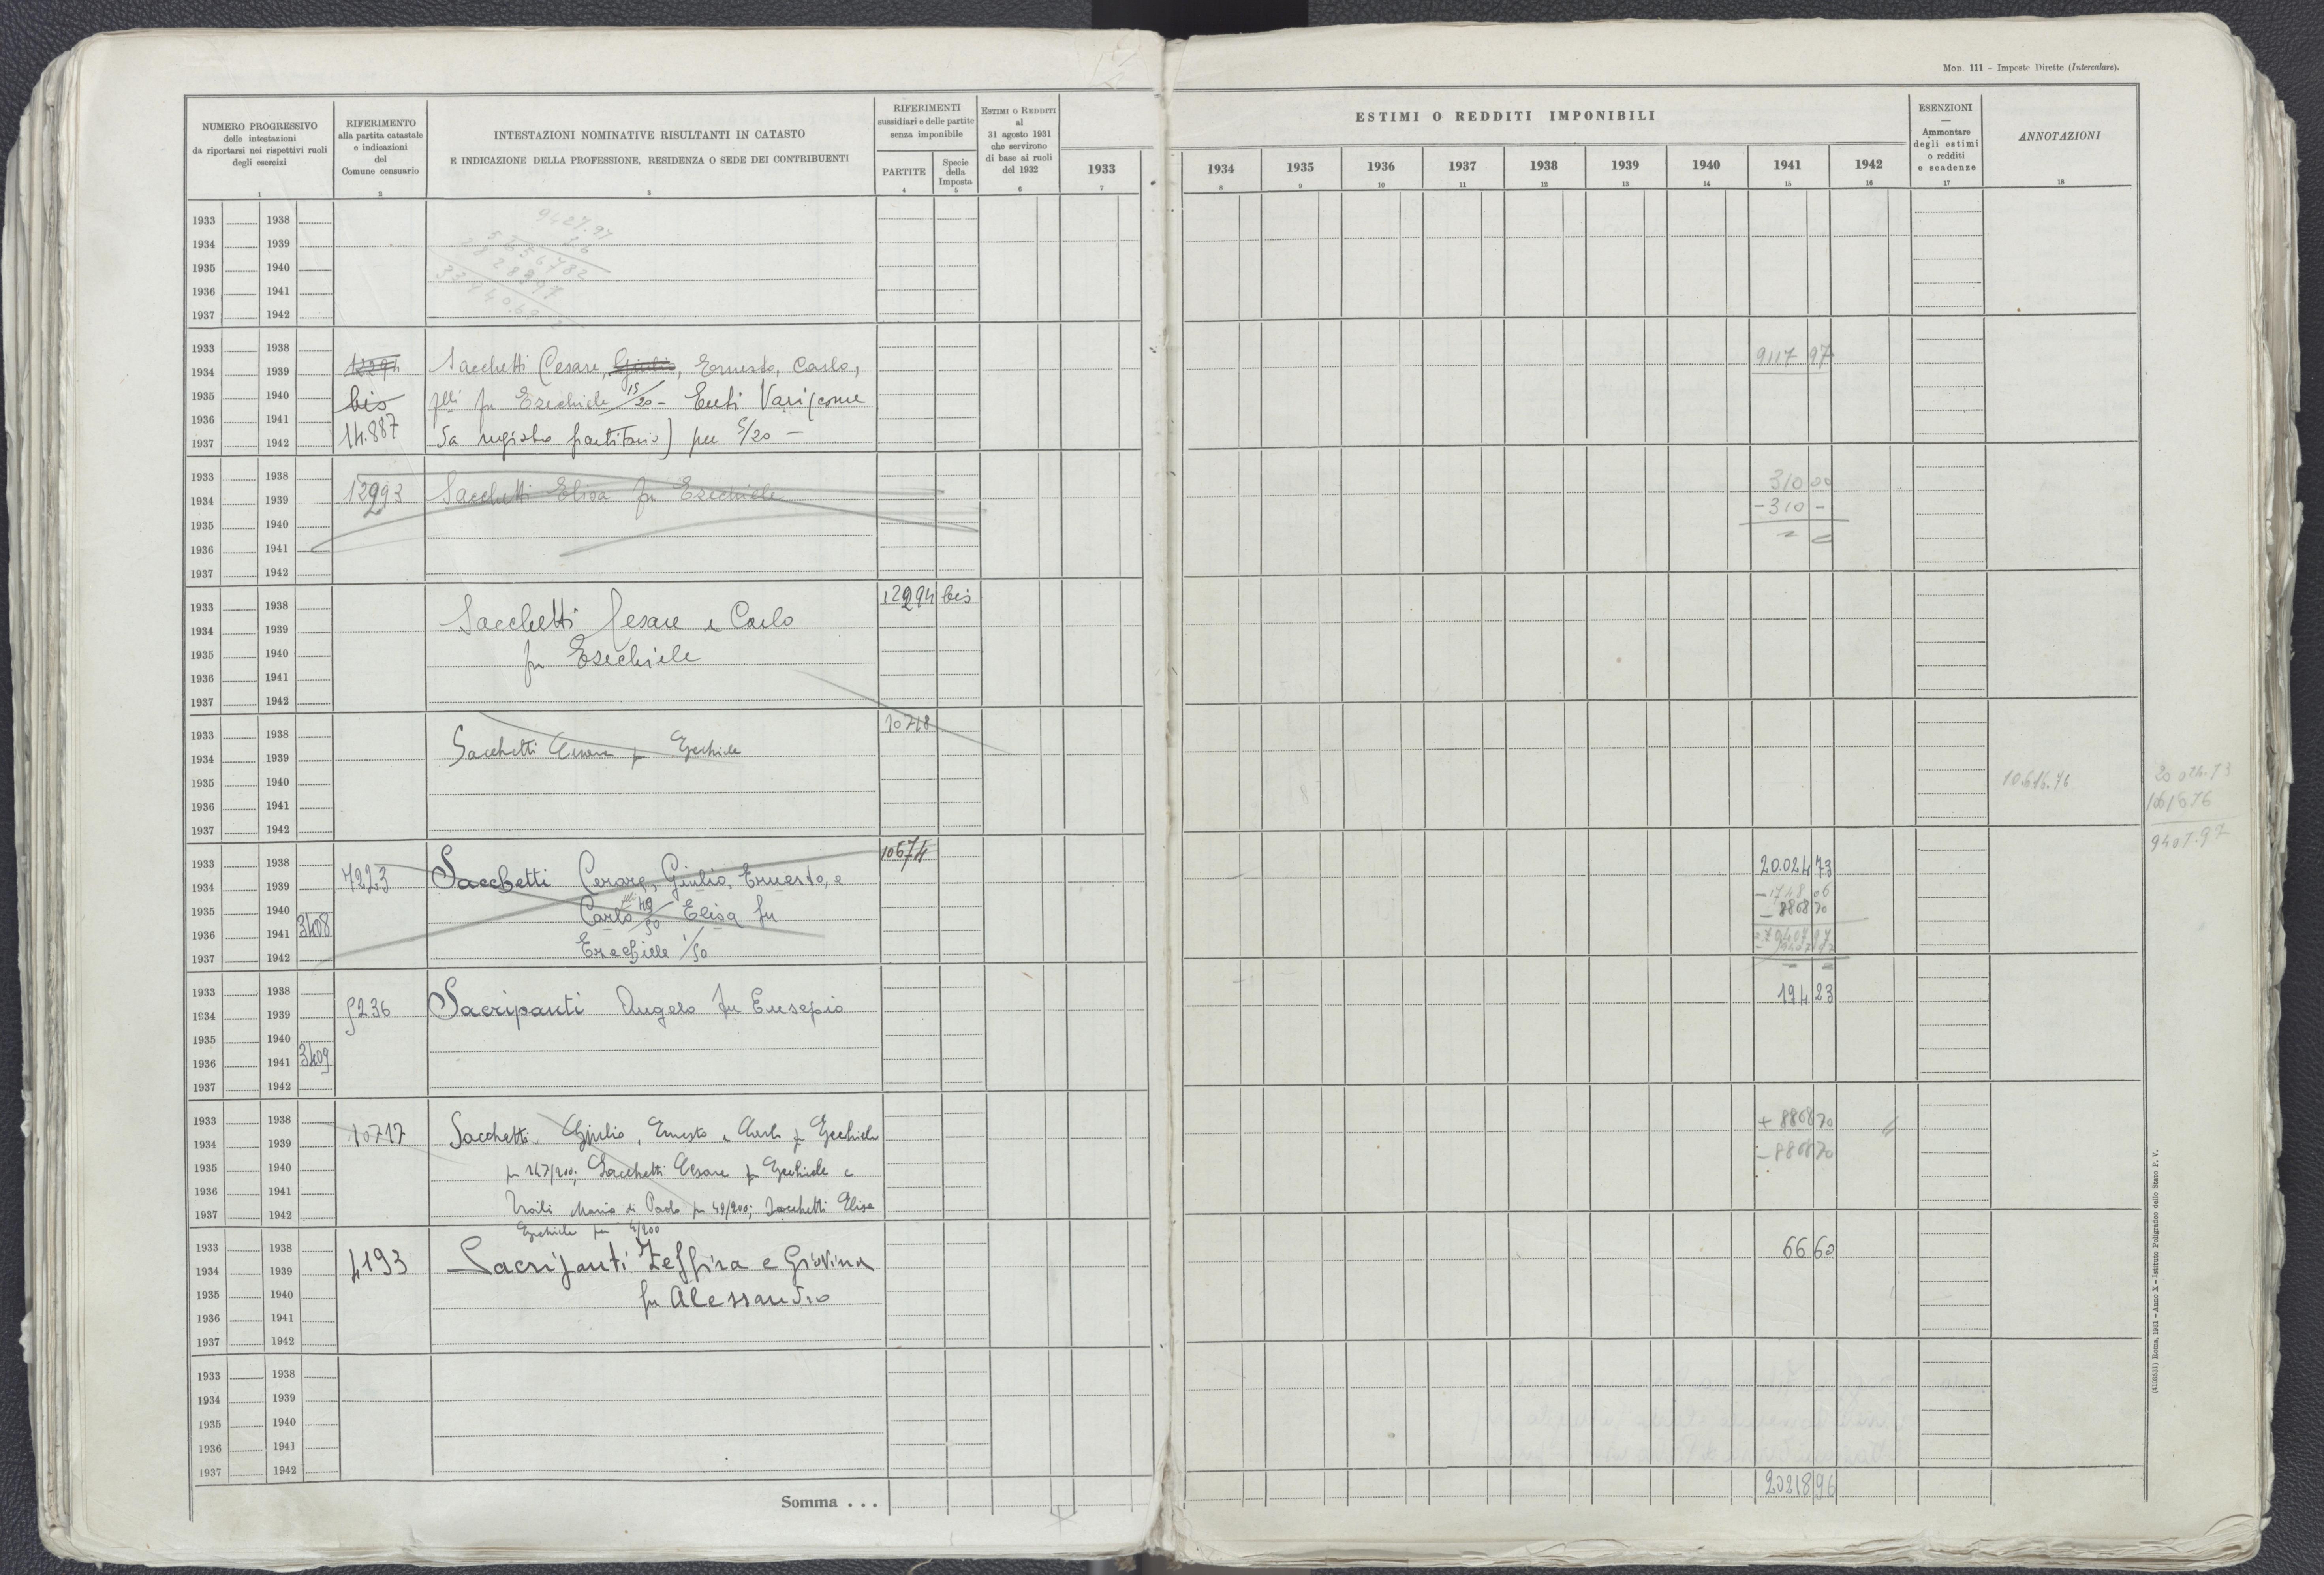 Mod. 111 – Imposte Dirette (Intercalare).
NUMERO PROGRESSIVO
delle intestazioni
da riportarsi nei rispettivi ruoli
degli esercizi
1
RIFERIMENTO
alla partita catastale
e indicazioni
del
Comune censuario
2
INTESTAZIONI NOMINATIVE RISULTANTI IN CATASTO
E INDICAZIONE DELLA PROFESSIONE, RESIDENZA O SEDE DEI CONTRIBUENTI
3
RIFERIMENTI
sussidiari e delle partite
senza imponibile
PARTITE
4
Specie
della
Imposta
5
ESTIMI O REDDITI
al
31 agosto 1931
che servirono
di base ai ruoli
del 1932
6
1933
7
ESTIMI O REDDITI IMPONIBILI
1934 1935 1936 1937 1938 1939 1940 1941 1942
8 9 10 11 12 13 14 15 16
ESENZIONI
—
Ammontare
degli estimi
o redditi
e scadenze
17
ANNOTAZIONI
18
1933 1938
1934 1939
1935 1940
1936 1941
1937 1942
9427.97
1933 1938
1934 1939 12294 Sacchetti Cesare, Giulio, Ernesto, Carlo, 9117 97
1935 1940 bis flli fu Ezechiele 15/20 – Enti Vari (come
1936 1941 14.887 da registro partitario) per 5/20 –
1937 1942
1933 1938
1934 1939 12993 Sacchetti Elisa fu Ezechiele 310 00
1935 1940 – 310 –
1936 1941
1937 1942
1933 1938 12294 bis
1934 1939 Sacchetti Cesare e Carlo
1935 1940 fu Ezechiele
1936 1941
1937 1942
1933 1938 10718
1934 1939 Sacchetti Cesare fu Ezechiele
1935 1940 10.616.76
1936 1941
1937 1942
20 024.73
10616 76
9407.97
1933 1938 10674
1934 1939 7223 Sacchetti Cesare, Giulio, Ernesto, e 20.024 73
1935 1940 Carlo flli 49/50 Elisa fu – 1748 06
1936 1941 3408 Ezechiele 1/50 – 8868 70
1937 1942
1933 1938
1934 1939 5236 Sacripanti Angelo fu Eusepio 194 23
1935 1940
1936 1941 3409
1937 1942
1933 1938
1934 1939 10717 Sacchetti Giulio, Ernesto e Carlo fu Ezechiele + 8868 70
1935 1940 per 147/200; Sacchetti Cesare fu Ezechiele e – 8868 70
1936 1941
1937 1942 Maria di Paolo per 49/200; Sacchetti Elisa
Ezechiele per 4/200
1933 1938
1934 1939 4193 Sacripanti Zeffira e Giovina 66 60
1935 1940 fu Alessandro
1936 1941
1937 1942
1933 1938
1934 1939
1935 1940
1936 1941
1937 1942
Somma . . . 20218 96
(4103531) Roma, 1931 – Anno X – Istituto Poligrafico dello Stato P. V.